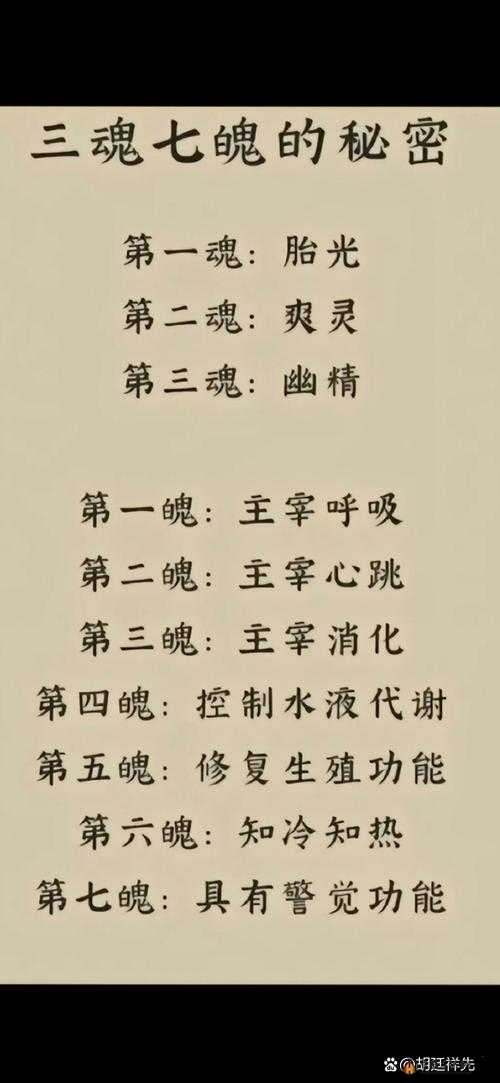 三魂七魄的秘密
第一魂：胎光
第二魂：爽灵
第三魂：幽精
第一魄：主宰呼吸
第二魄：主宰心跳
第三魄：主宰消化
第四魄：控制水液代谢
第五魄：修复生殖功能
第六魄：知冷知热
第七魄：具有警觉功能
@胡廷祥先